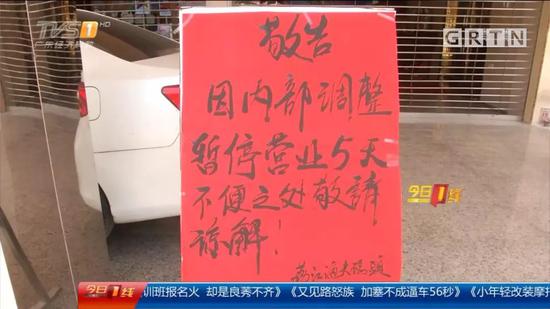 TVS1 HD
GRTN
敬告
因内部调整
暂停营业5天
不便之处敬請
谅解！
今日1线
今日1线 训班报名火 却是良莠不齐》《又见路怒族 加塞不成逼车56秒》《小年轻改装摩